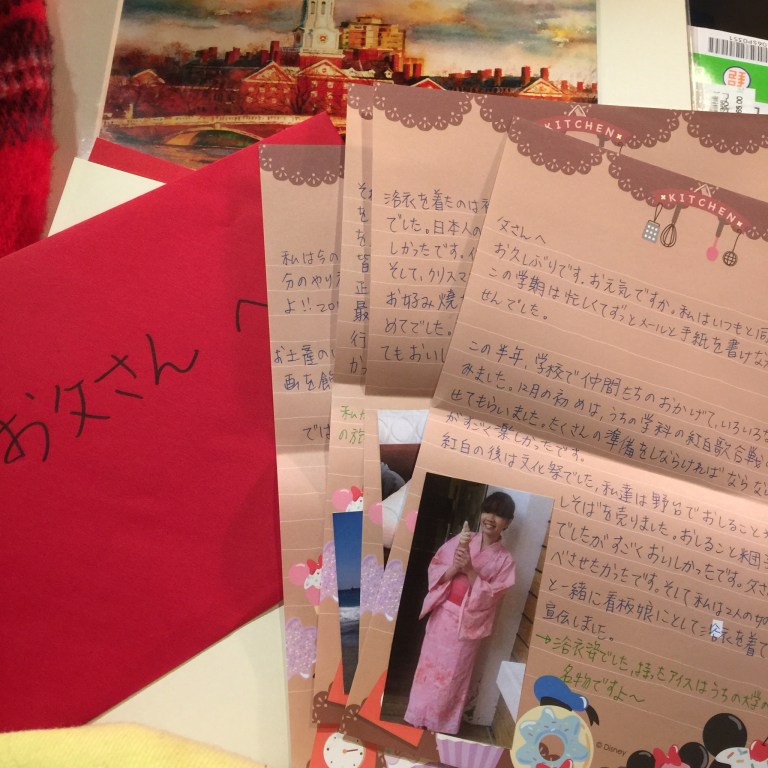 お父さん へ
KITCHEN
KITCHEN
父さんへ
お久しぶりです。お元気ですか。私はいつもと同
この学期は忙しくてずっとメールと手紙を書けな
せんでした。
この半年、学校で仲間たちのおかげて、いろいろな
みました。12月の初めは、うちの学科の紅白歌合戦
せてもらいました。たくさんの準備をしならければならない
がすごく楽しかったです。
紅白の後は文化祭でした。私達は野台でおしること
しそばを売りました。おしること
でしたがすごくおいしかったです。父さ
べさせたかったです。そして私は2人の
と一緒に看板娘にとして浴衣を着て
宣伝しました。
→浴衣姿でした。持ったアイスはうちの大学の
名物ですよ〜
© Disney
浴衣を着たのは
でした。日本人の
しかったです。
そして、クリスマ
お好み焼
めてでした。
てもおいし
それ
を
を、
皆
正
最
行
かっ
私た
の旅
私は今の
分のやり
よ!!20
お土産の
画を飾
では